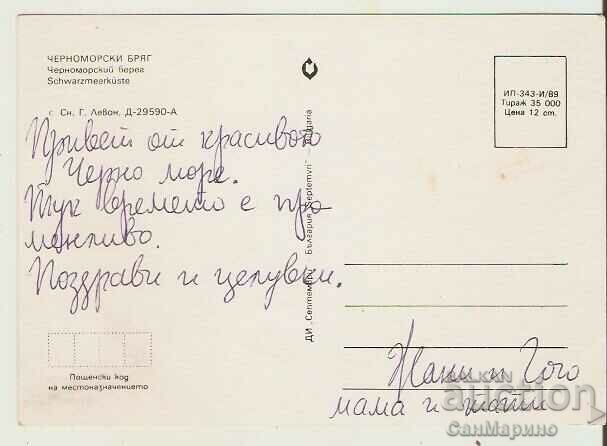 ЧЕРНОМОРСКИ БРЯГ
Черноморский берег
Schwarzmeerküste
Сн. Г. Левон. Д-29590-А
Привет от красивото
Черно море.
Тук времето е про
менливо.
Поздрави и целувки.
ДИ „Септември" България "Septemvri" — Bulgaria
ИП-343-И/89
Тираж 35 000
Цена 12 ст.
Жани и Гого
мама и тати
Пощенски код
на местоназначението
BALKAN
auction
СанМарино